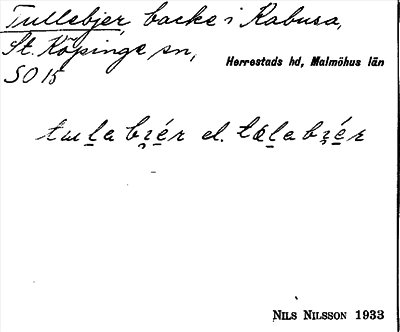 Tullebjer, backe i Kabusa,
St. Köpinge sn,
Herrestads hd, Malmöhus län
SO 15
el.
NILS NILSSON 1933